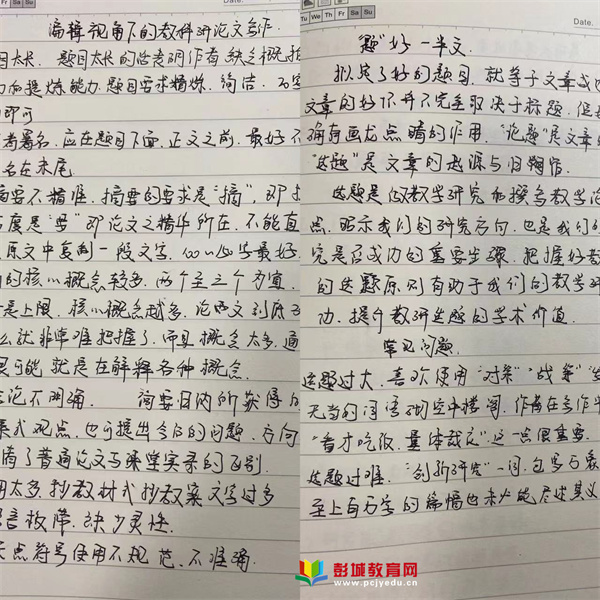 Date.
编辑视角下的教科研论文写作
题目太长. 题目太长的总表明作者缺乏概括
力和提炼能力. 题目要求精炼、简洁、
即可
者署名, 应在题目下面, 正文之前, 最好不
名在末尾
摘要不精准, 摘要的要求是"摘", 即
度是"要" 即论文之精华所在, 不能直
原文中复制一段文字, 100~150字最好.
的核心概念较多, 两个至三个为宜,
是上限, 核心概念越多, 论文到底
么就非常难把握了, 而且概念太多, 通
可能就是在解释各种概念.
论不明确. 摘要归纳所获得的
果或观点, 也可提出今后的问题, 方向
清了普通论文与课堂实录的区别.
用太多, 抄教材或抄教案文字过多
言板滞, 缺少灵性.
标点符号使用不规范, 不准确.
Mo Tu We Th Fr Sa Su
Date.
"题"好一半文.
拟定了好的题目, 就等于文章成功
文章的好坏并不完全取决于标题, 但
确有画龙点睛的作用. "论题"是文章
"选题"是文章的起源与归宿.
选题是做教学研究和撰写教学论
点, 昭示我们的研究方向, 也是我们的
究是否成功的重要步骤, 把握好教
的选题原则有助于我们的教学研
功, 提升教研选题的学术价值.
常见问题.
选题过大, 喜欢使用"对策""战策"
无当的词语砌空中楼阁, 作者在写作
"看才吃饭, 量体裁衣"这一点很重要.
选题过难. "创新研究"一词, 包罗万象
至上百万字的篇幅也未必能尽述其义
彭城教育网
www.pcjyedu.cn